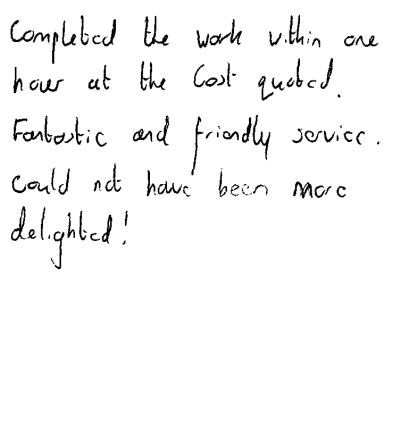 Completed the work within one
hour at the cost quoted.
Fantastic and friendly service.
Could not have been more
delighted!